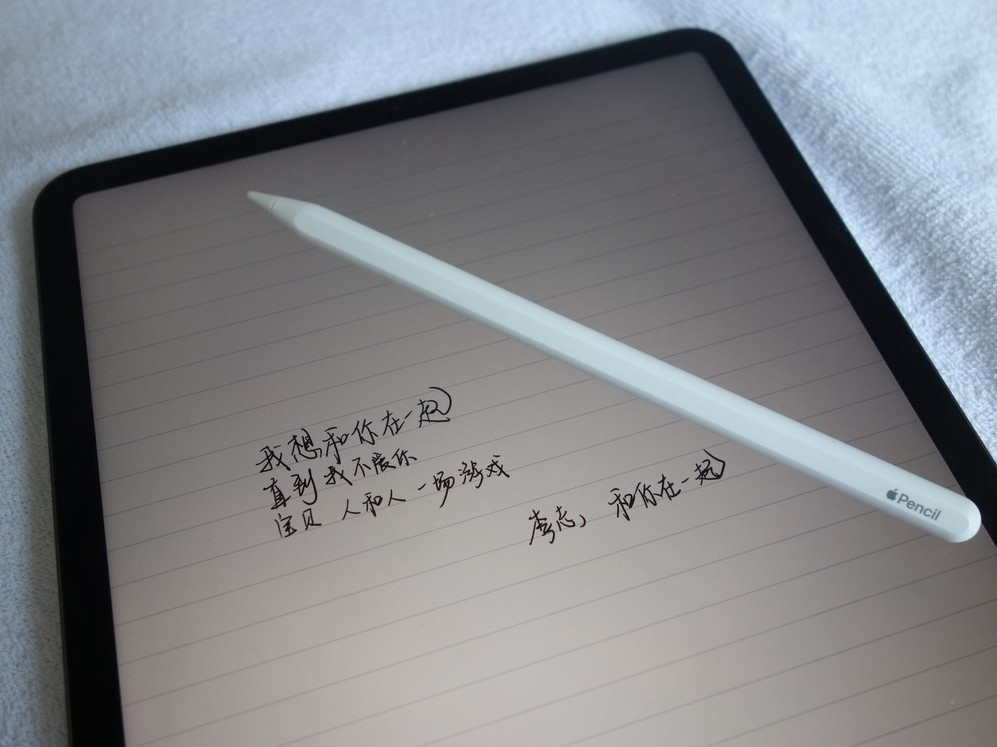 我想和你在一起
直到我不爱你
宝贝 人和人 一场游戏
李志, 和你在一起
Pencil